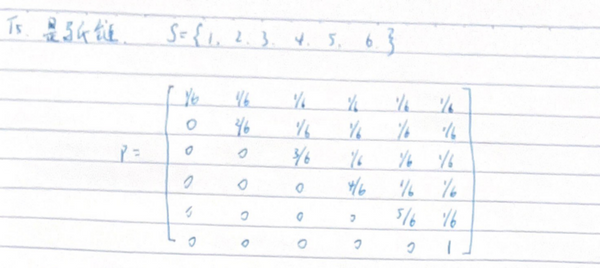 T5. 是马氏链. S={1. 2. 3. 4. 5. 6.}
1/6 1/6 1/6 1/6 1/6 1/6
0 2/6 1/6 1/6 1/6 1/6
P= 0 0 3/6 1/6 1/6 1/6
0 0 0 4/6 1/6 1/6
0 0 0 0 5/6 1/6
0 0 0 0 0 1